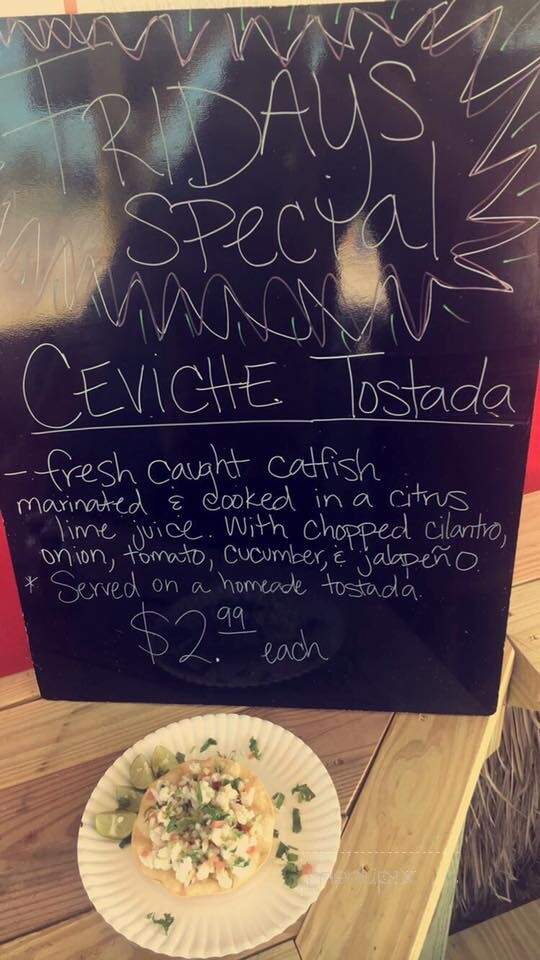 FRIDAYS
SPecial
CEVICHE Tostada
- fresh caught catfish
marinated & cooked in a citrus
lime juice. With chopped cilantro,
onion, tomato, cucumber, & jalapeño.
* Served on a homeade tostada.
$2.99 each
menupix